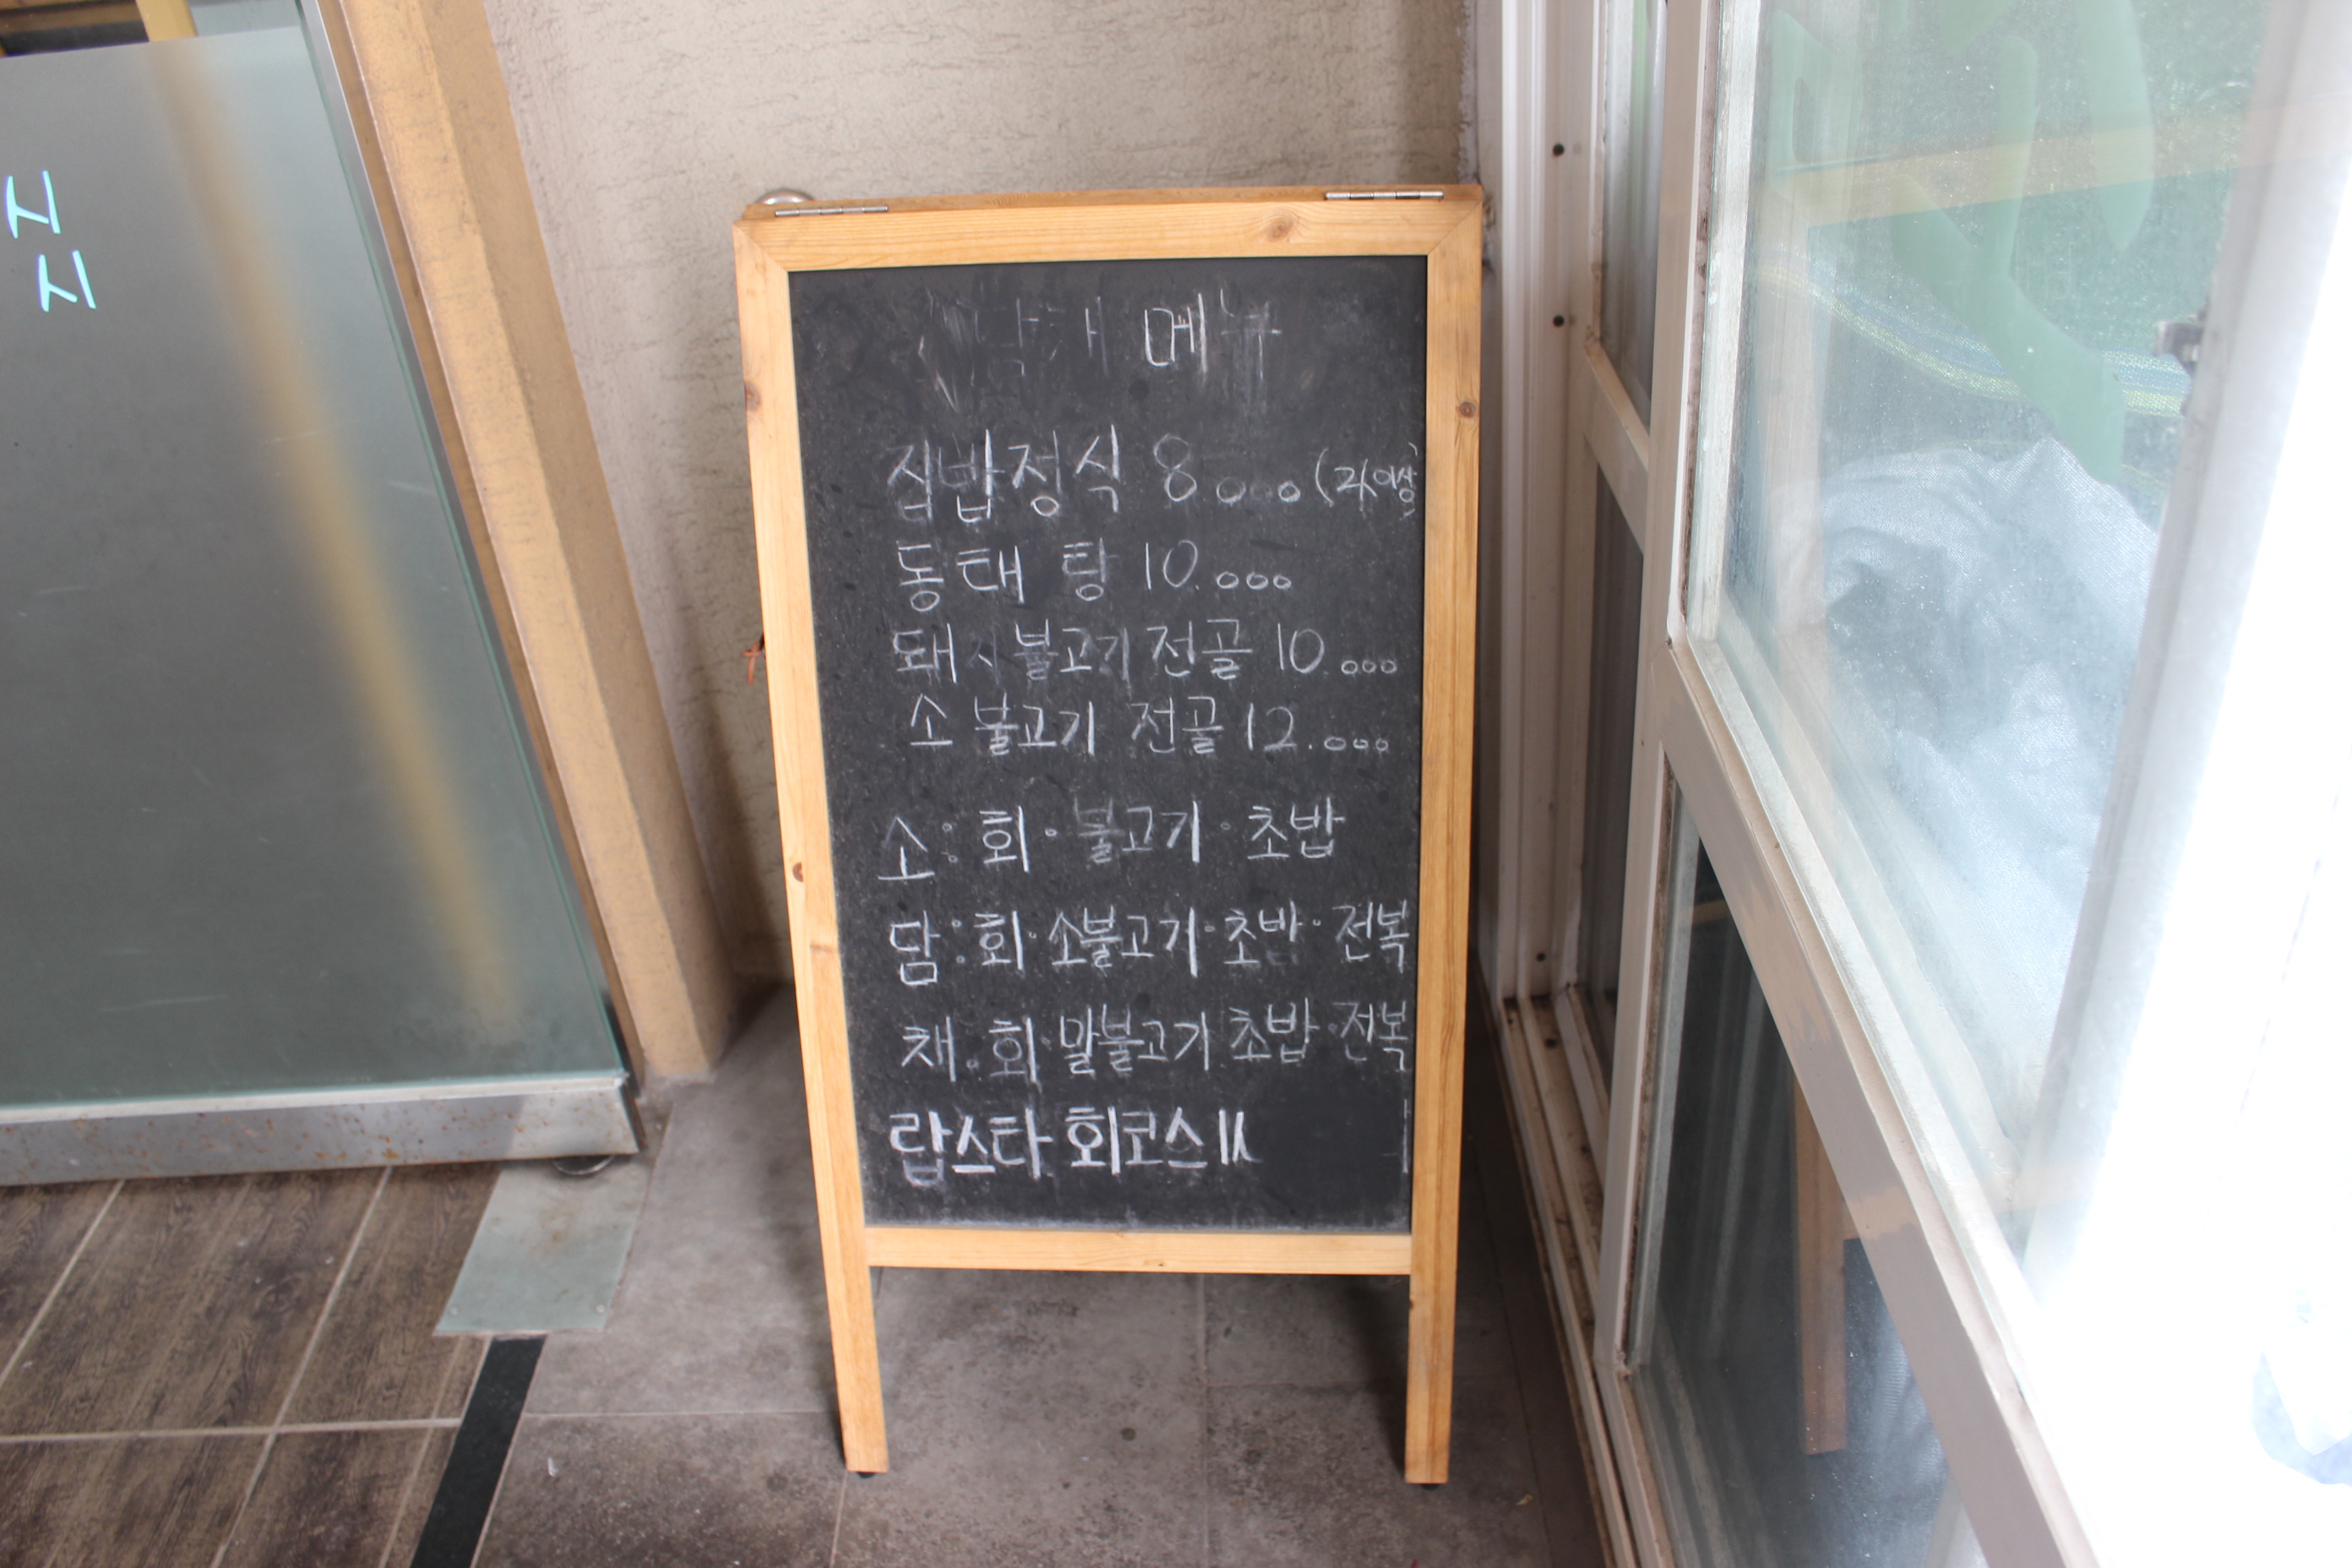 시
시
메뉴
집밥정식 8.000 (2人이상)
동태 탕 10.000
돼지불고기 전골 10.000
소 불고기 전골 12.000
소: 회·불고기·초밥
담: 회·소불고기·초밥·전복
채: 회·말불고기 초밥·전복
랍스타 회코스